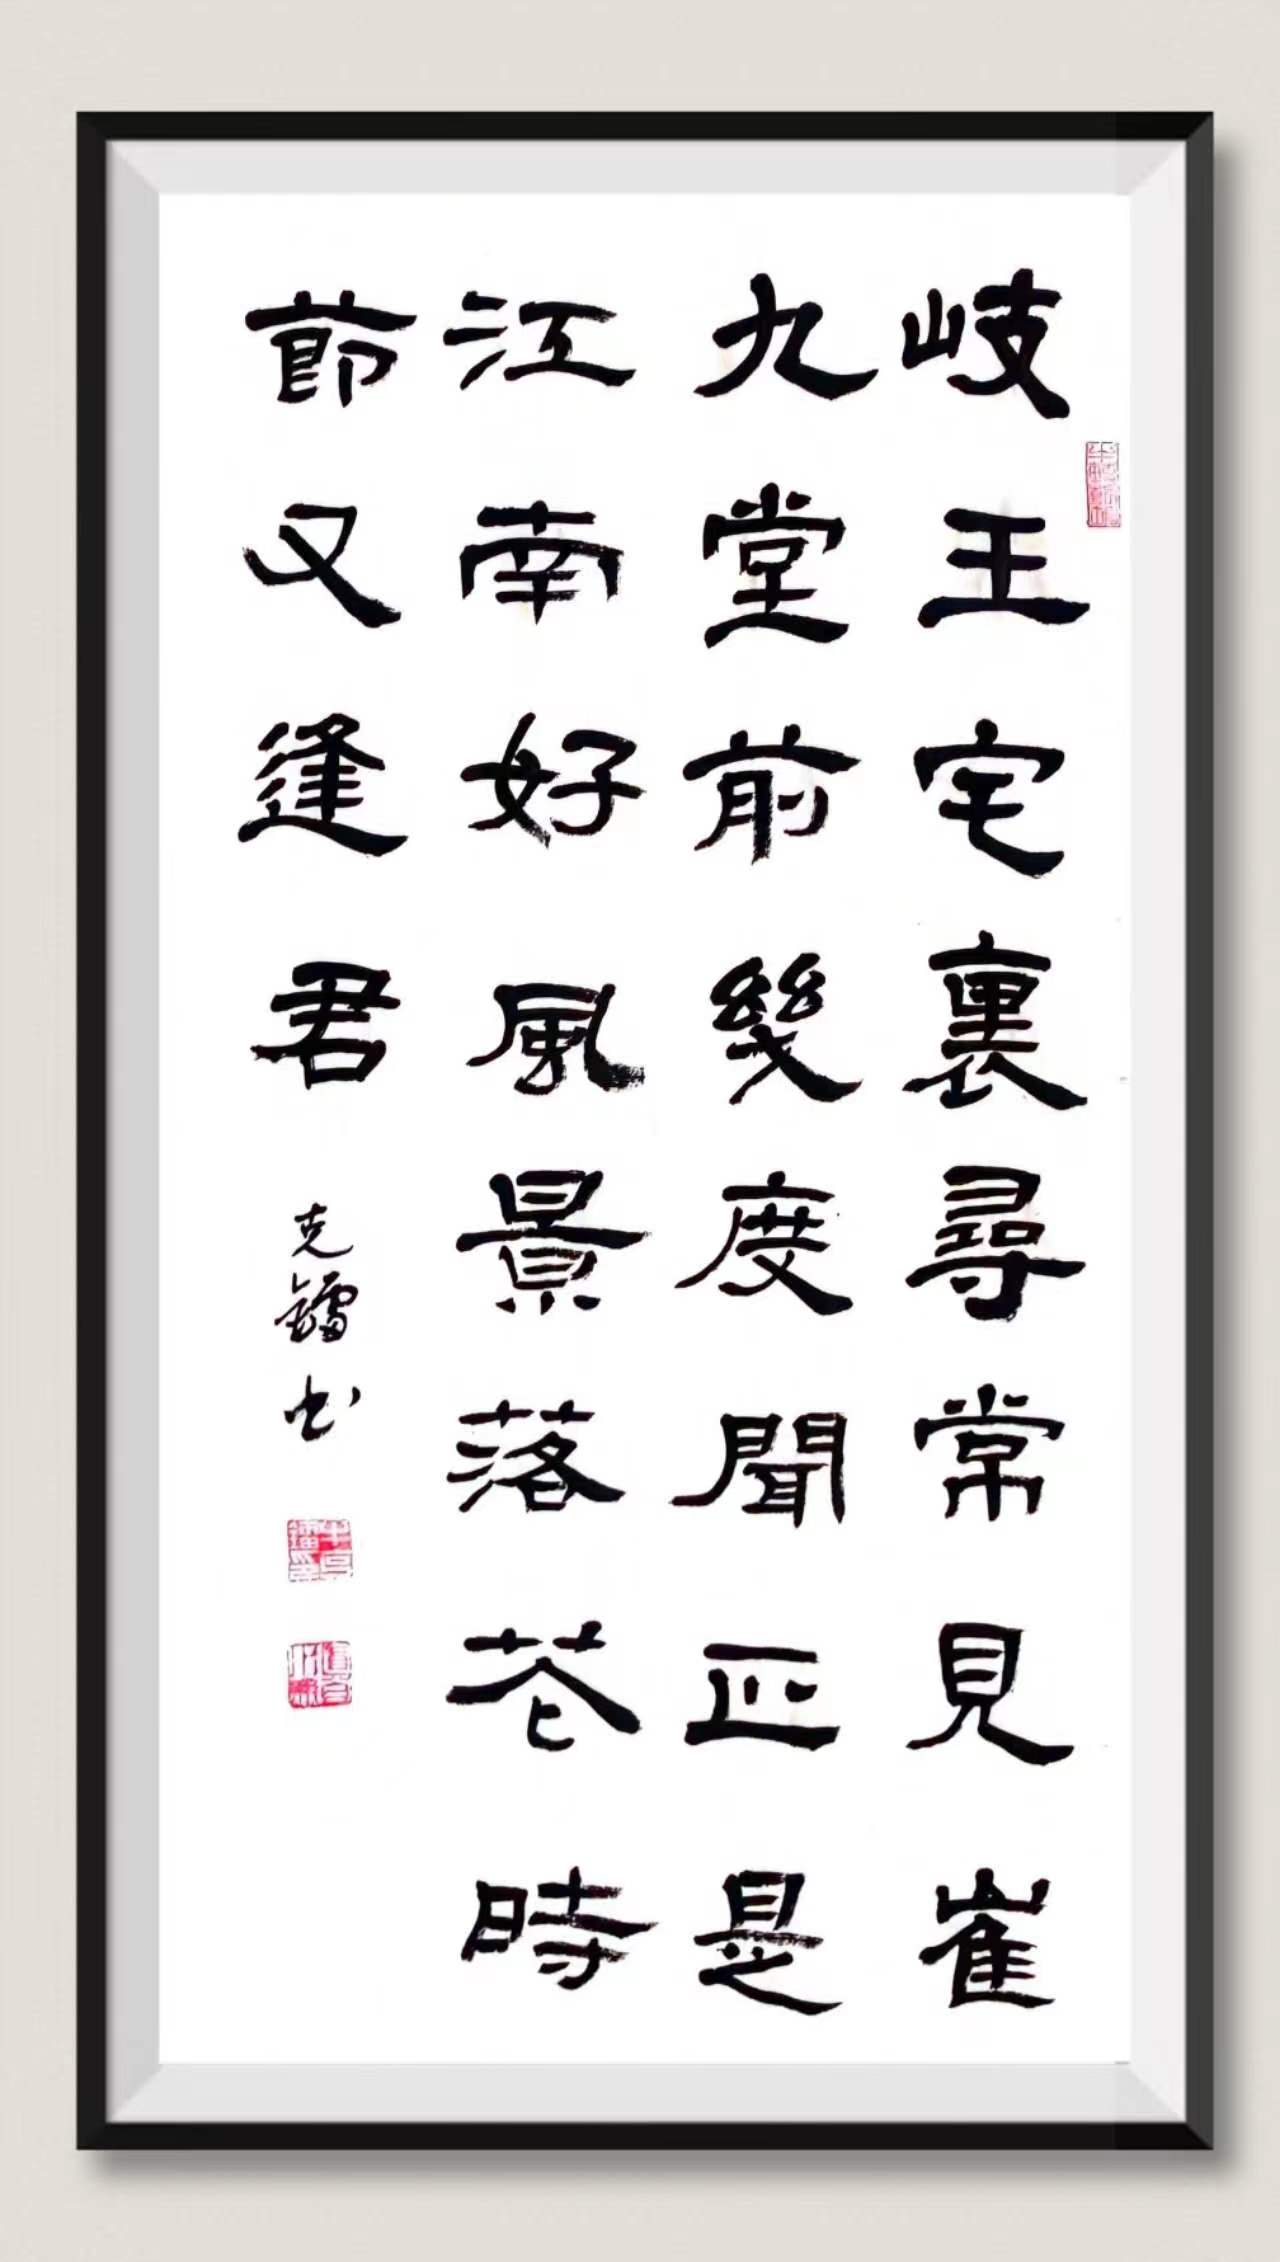 岐王宅裏尋常見崔
九堂前幾度聞正是
江南好風景落花時
節又逢君
克鐳书